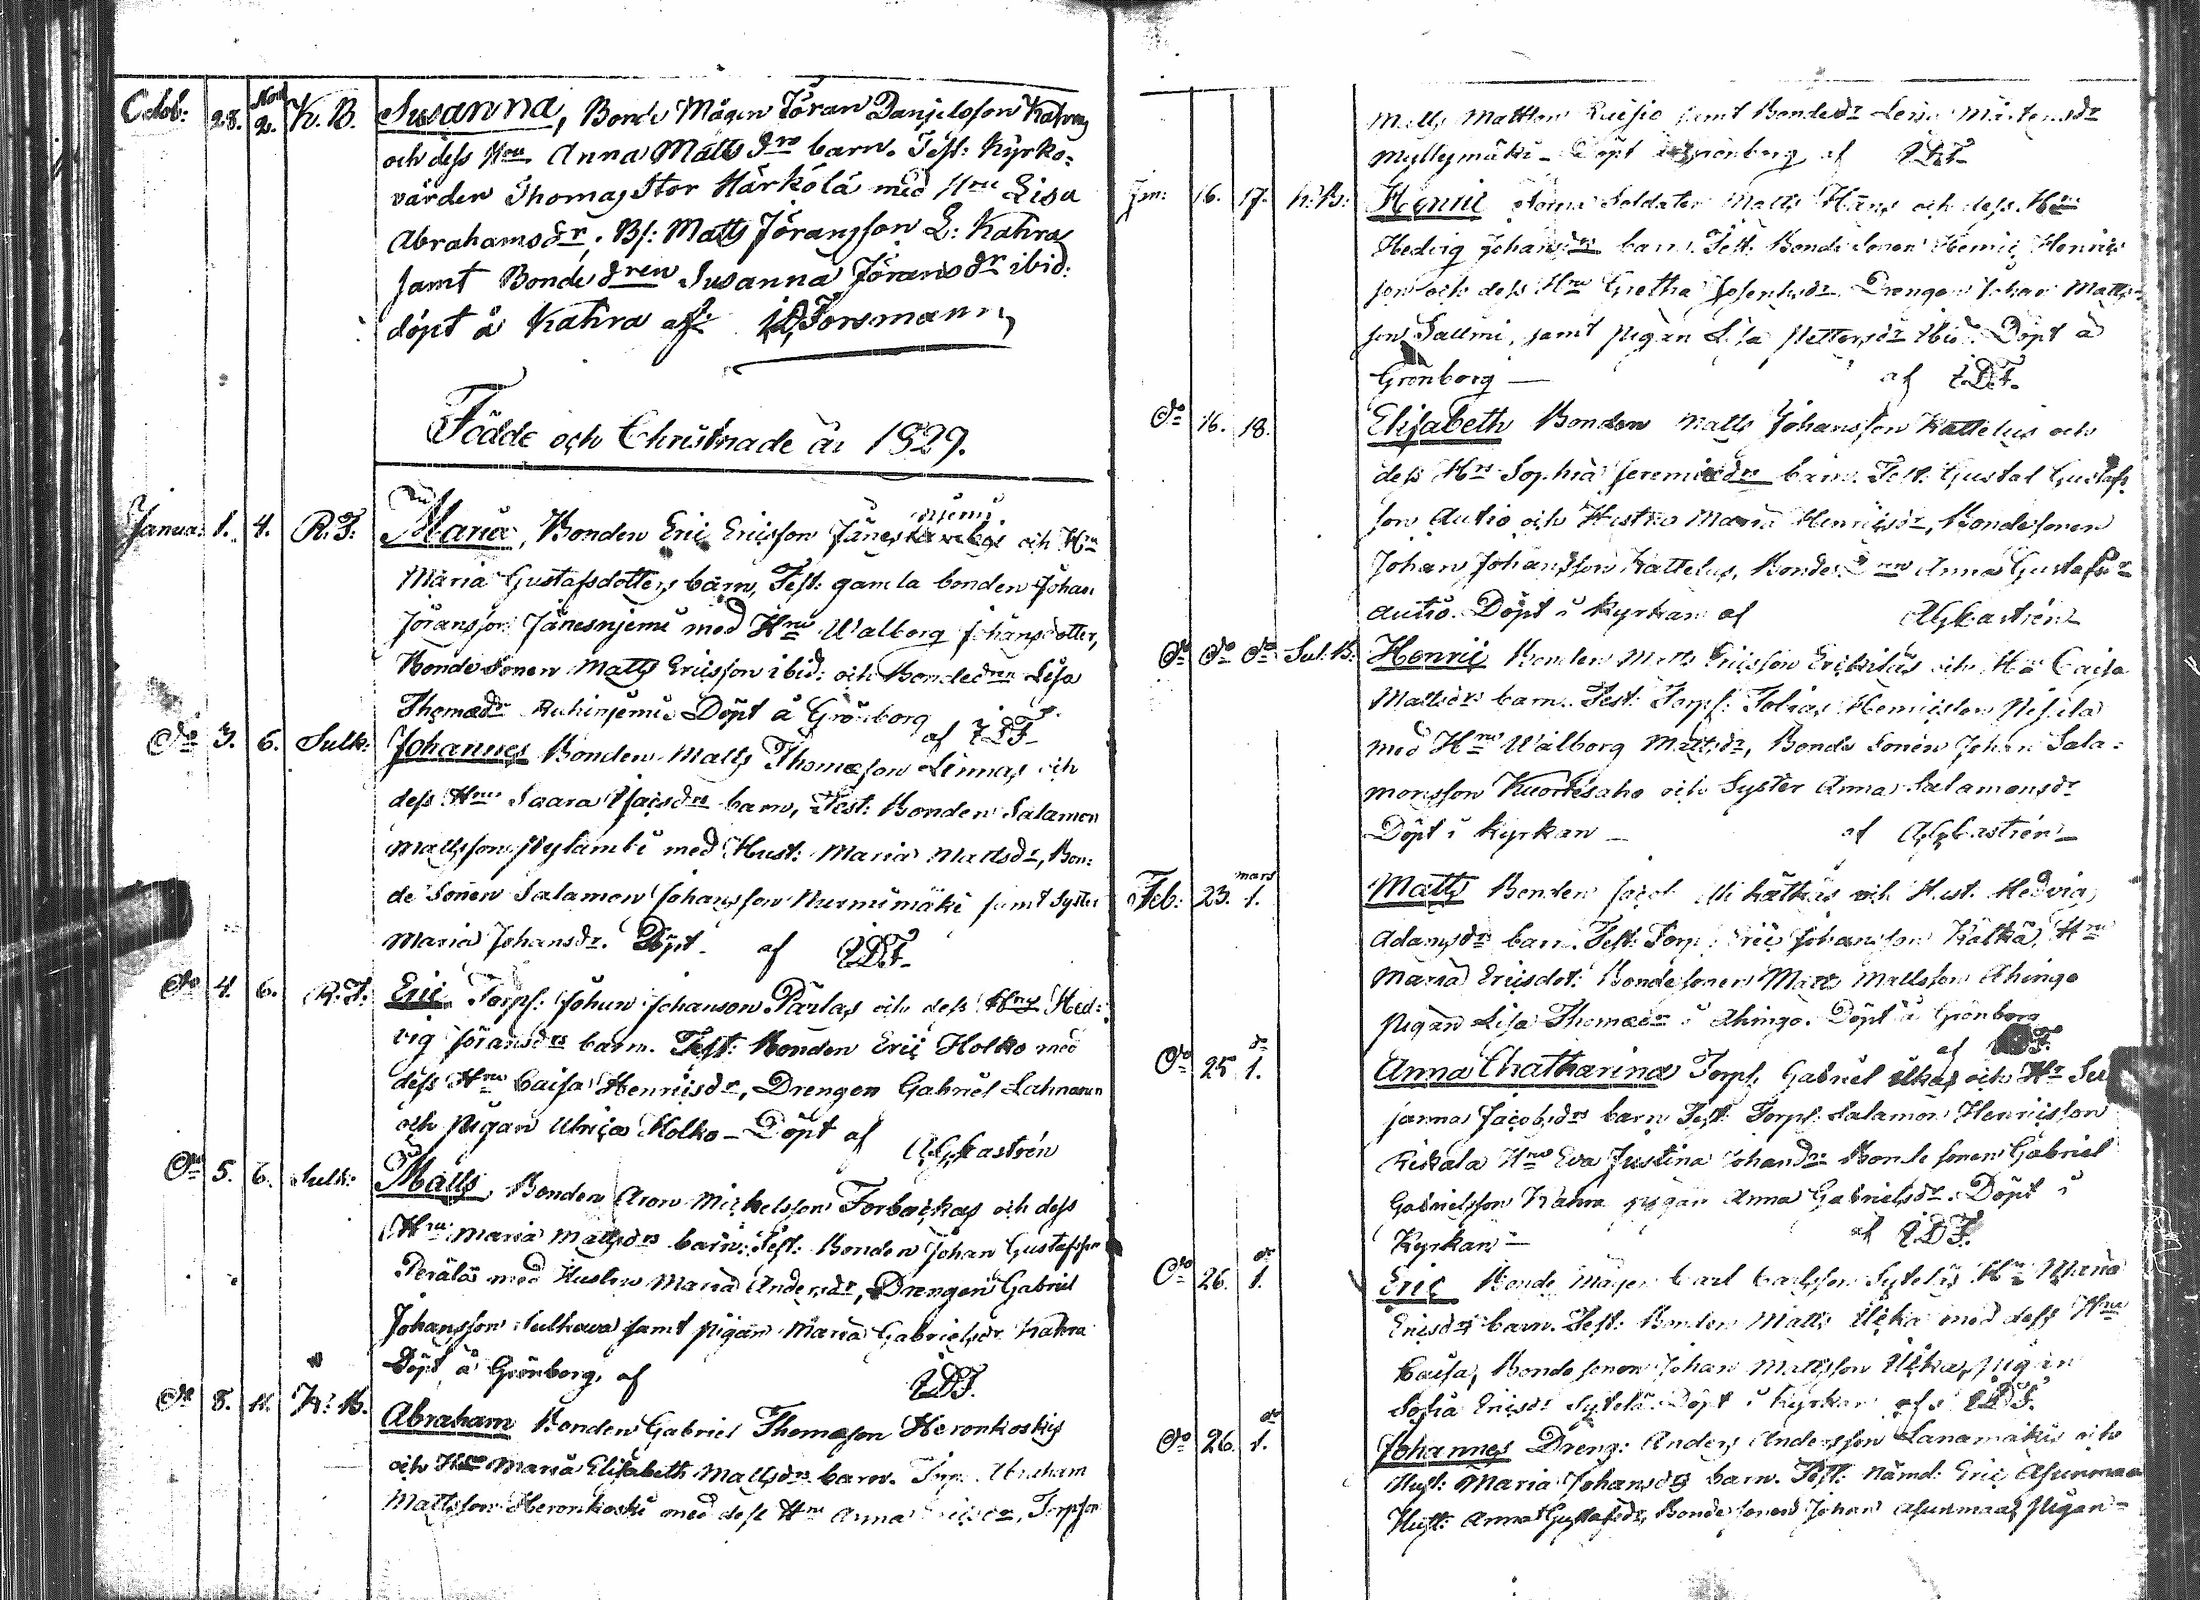 Octob: 28. Nov 2. K. B. Susanna, Bonde Mågen Jöran Danjelsson Kahras
och dess Hru Anna Matts drs barn. Test: Kyrko-
värden Thomas Stor Härkölä med Hru Lisa
Abrahamsdr, Bs: Matts Jöransson L: Kahra
samt Bonde dren Susanna Jöransdr ibid:
döpt å Kahra af IDForsmann
Födde och Christnade år 1829.
Janua: 1. 4. R. J. Maria, Bonden Eric Ericsson Jänes och Hru
niemi
Maria Gustafsdotters barn, Test: gamla bonden Johan
Jöransson Jänesnjemi med Hru Walborg Johansdotter,
Bonde Sonen Matts Ericsson ibid: och Bondedren Lisa
Thomædr Döpt å Grönborg
af IDF.
Do 3. 6. Sulk: Johannes Bonden Matts Thomæson Linnas och
dess Hrus Saara drs barn, Test: Bonden Salamon
Mattsson med Hust: Maria Mattsdr, Bon:
de Sonen Salamon Johansson Nurmimäki samt Syster
Maria Johansdr. Döpt af IDF.
Do 4. 6. R. J. Eric Torps: Johan Johanson och dess Hrus Hed:
vig Jöransdrs barn. Test: Bonden Eric Holko med
dess Hru Caisa Henricsdr, Drengen Gabriel
och Pigan Ulrica Holko - Döpt af
AGCastrén
Do 5. 6. Sulk: Matts, Bonden Aron Michelsson Forbackas och dess
Hrus Maria Mattsdrs barn: Test: Bonden Johan Gustafsson
Perälä med Hustru Maria Andersdr, Drengen Gabriel
Johansson Sulkava samt pigan Maria Gabrielsdr Kahra
Döpt å Grönborg, af IDF.
Do 8. 11. K. B. Abraham Bonden Gabriel Thomæson Heronkoskis
och Hrus Maria Elisabeth Mattsdrs barn. Abraham
Mattsson Heronkoski med dess Hru Anna Torpson
Matts Mattson samt Bondedr Lena Mårtensdr
Myllymäki - Döpt å Grönborg af IDF.
Jan: 16. 17. K. B: Henric Soldaten Matts Häns och dess Hrus
Hedvig Johansdrs barn. Test: Bonde Sonen Henric Henrics
son och dess Hru Gretha Josephsdr, Drengen Johan Matts-
son Sallmi, samt pigan Lisa Pettersdr ibid. Döpt å
Grönborg - af IDF.
Do 16. 18. Elisabeth Bonden Matts Johansson Kattelus och
dess Hrs Sophia Jeremiædrs barn. Test: Gustaf Gustafs
son Autio och Hustru Maria Henricsdr, Bondesonen
Johan Johansson Kattelus, Bonde dren Anna Gustafsdr
Autio. Döpt i Kyrkan af AGCastrén
Do Do Do Sul. B: Henric Bonden Matts Ericsson och Hs Caisa
Mattsdrs barn. Test: Torps: Tobias Henricsson
med Hru Walborg Mattsdr, Bonde Sonen Johan Sala-
monsson Kuortesaho och Syster Anna Salamonsdr
Döpt i Kyrkan - af AGCastrén -
Feb: 23. mars 1. Matts Bonden Jacob och Hust. Hedvig
Adamsdrs barn. Test: Torp: Eric Johansson Kätkä, Hru
Maria Ericsdot: Bondesonen Matts Mattsson Ähingo
pigan Lisa Thomædr i Ähingo. Döpt å Grönborg
af IDF.
Do 25 do 1. Anna Chatharina Torps: Gabriel och Hr Su
sanna Jacobsdrs barn Test: Torps: Salamon Henricsson
Hru Eva Justina Johansdr Bonde sonen Gabriel
Gabrielsson Kahra pigan Anna Gabrielsdr. Döpt i
Kyrkan - af IDF.
Do 26. do 1. Eric Bonde Mågen Carl Carlsson Sytelä Hrs Maria
Ericsdrs barn. Test: Bonden Matts med dess Hru
Caisa, Bonde sonen Johan Mattsson pigan
Sofia Ericsdr Sytelä. Döpt i Kyrkan af IDF.
Do 26. do 1. Johannes Dreng: Anders Andersson Lanamäki och
Hust: Maria Johansdrs barn. Test: Nämd: Eric Asunmaa
Hust: Anna Gustafsdr, Bonde sonen Johan Asunmaa, Pigan